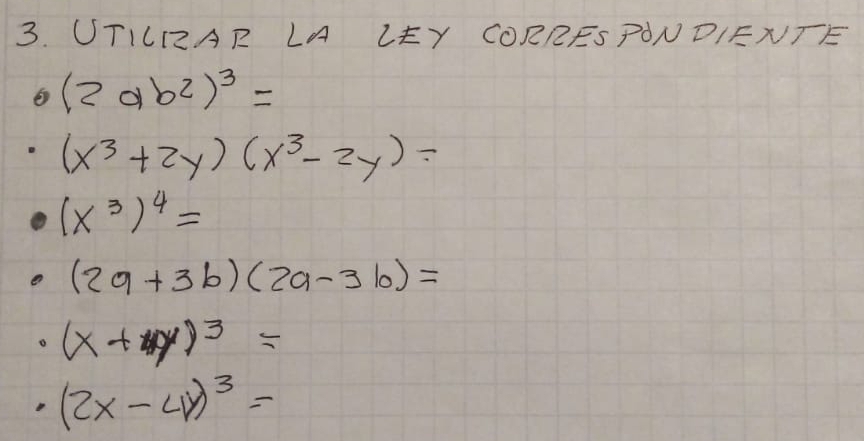 3. UTILIZAR LA LEY CORRESPONDIENTE
• (2ab²)³ =
• (x³ + 2y)(x³ - 2y) =
• (x³)⁴ =
• (2a + 3b)(2a - 3b) =
• (x + y)³ =
• (2x - 4y)³ =